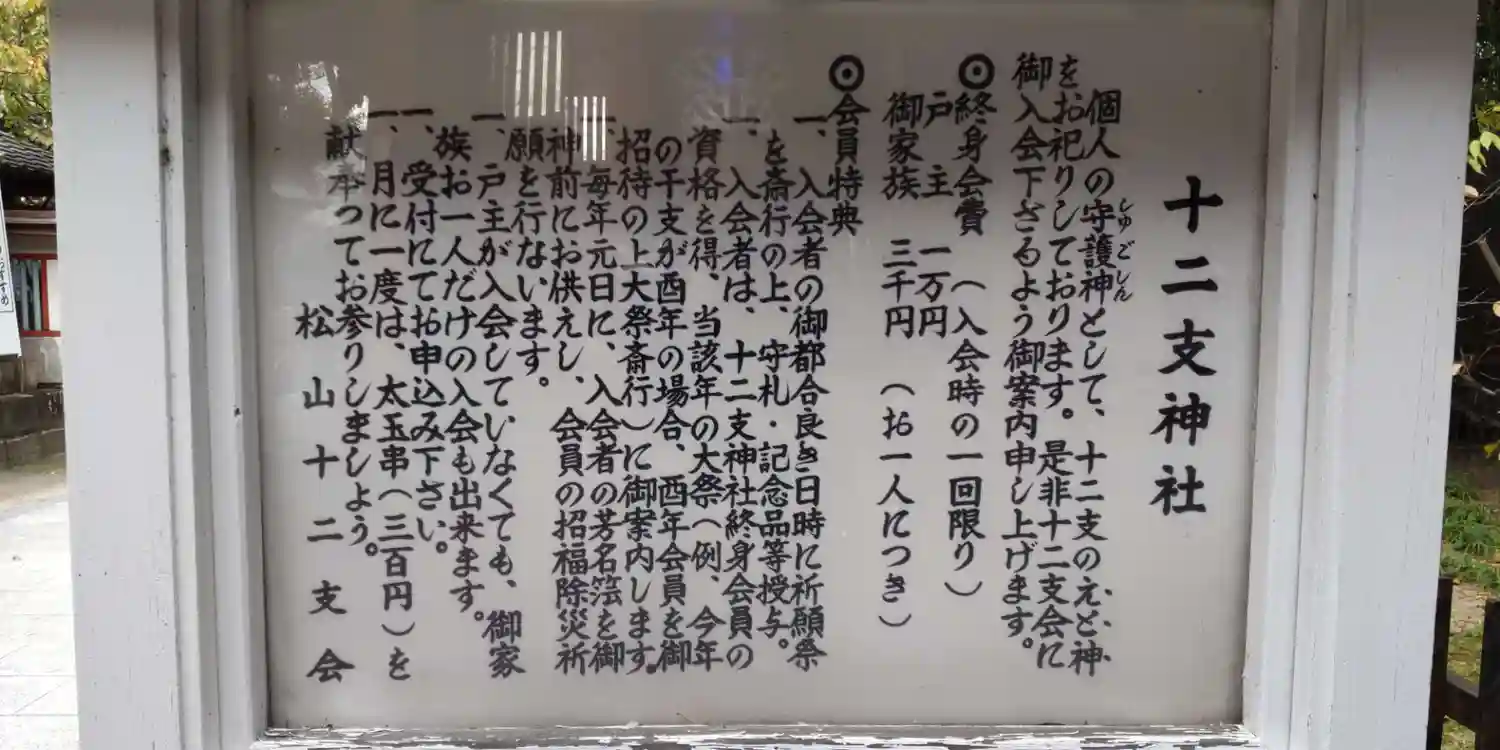 十二支神社
個人の守護神として、十二支のえと神
しゅごしん
をお祀りしております。是非十二支会に
御入会下さるよう御案内申し上げます。
◎終身会費（入会時の一回限り）
戸主　一万円
御家族　三千円　（お一人につき）
◎会員特典
一、入会者の御都合良き日時に祈願祭
を斎行の上、守札・記念品等授与。
一、入会者は、十二支神社終身会員の
資格を得、当該年の大祭（例、今年
の干支が酉年の場合、酉年会員を御
招待の上大祭斎行）に御案内します。
一、毎年元日に、入会者の芳名簿を御
神前にお供えし、会員の招福除災祈
願を行ないます。
一、戸主が入会していなくても、御家
族お一人だけの入会も出来ます。
一、受付にてお申込み下さい。
一、月に一度は、太玉串（三百円）を
献奉つてお参りしましょう。
松山十二支会